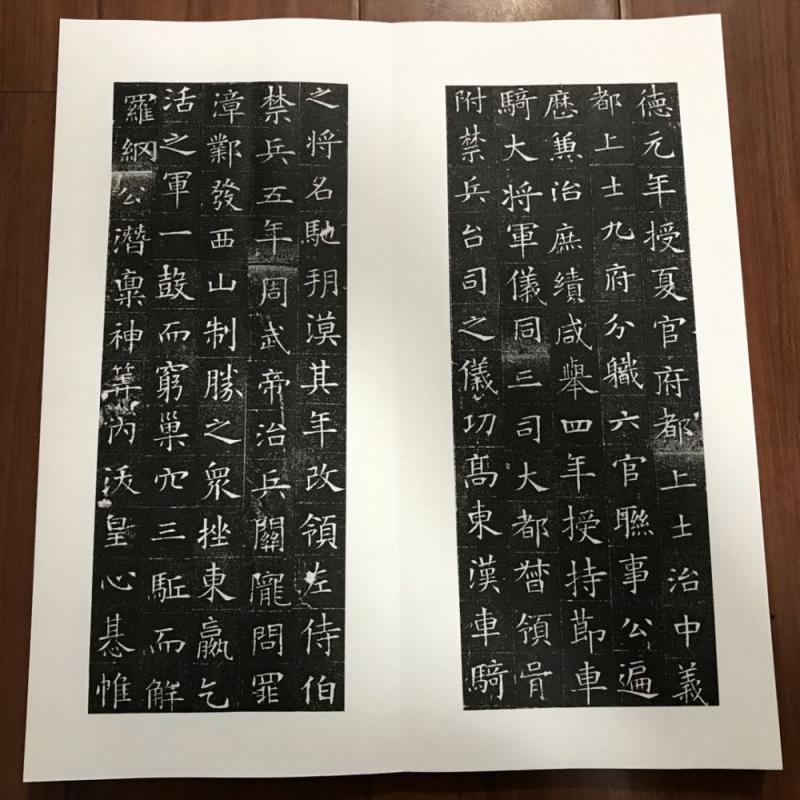 德元年授夏官府都上士治中義
都上士九府分職六官聯事公遍
歷兼治庶績咸舉四年授持節車
騎大将軍儀同三司大都督領胄
附禁兵台司之儀功髙東漢車騎
之将名馳朔漠其年改領左侍伯
禁兵五年周武帝治兵關隴問罪
漳鄴發西山制勝之衆挫東嬴乞
活之軍一鼓而窮巢穴三駈而解
羅網公潛稟神筭内沃皇心惎帷